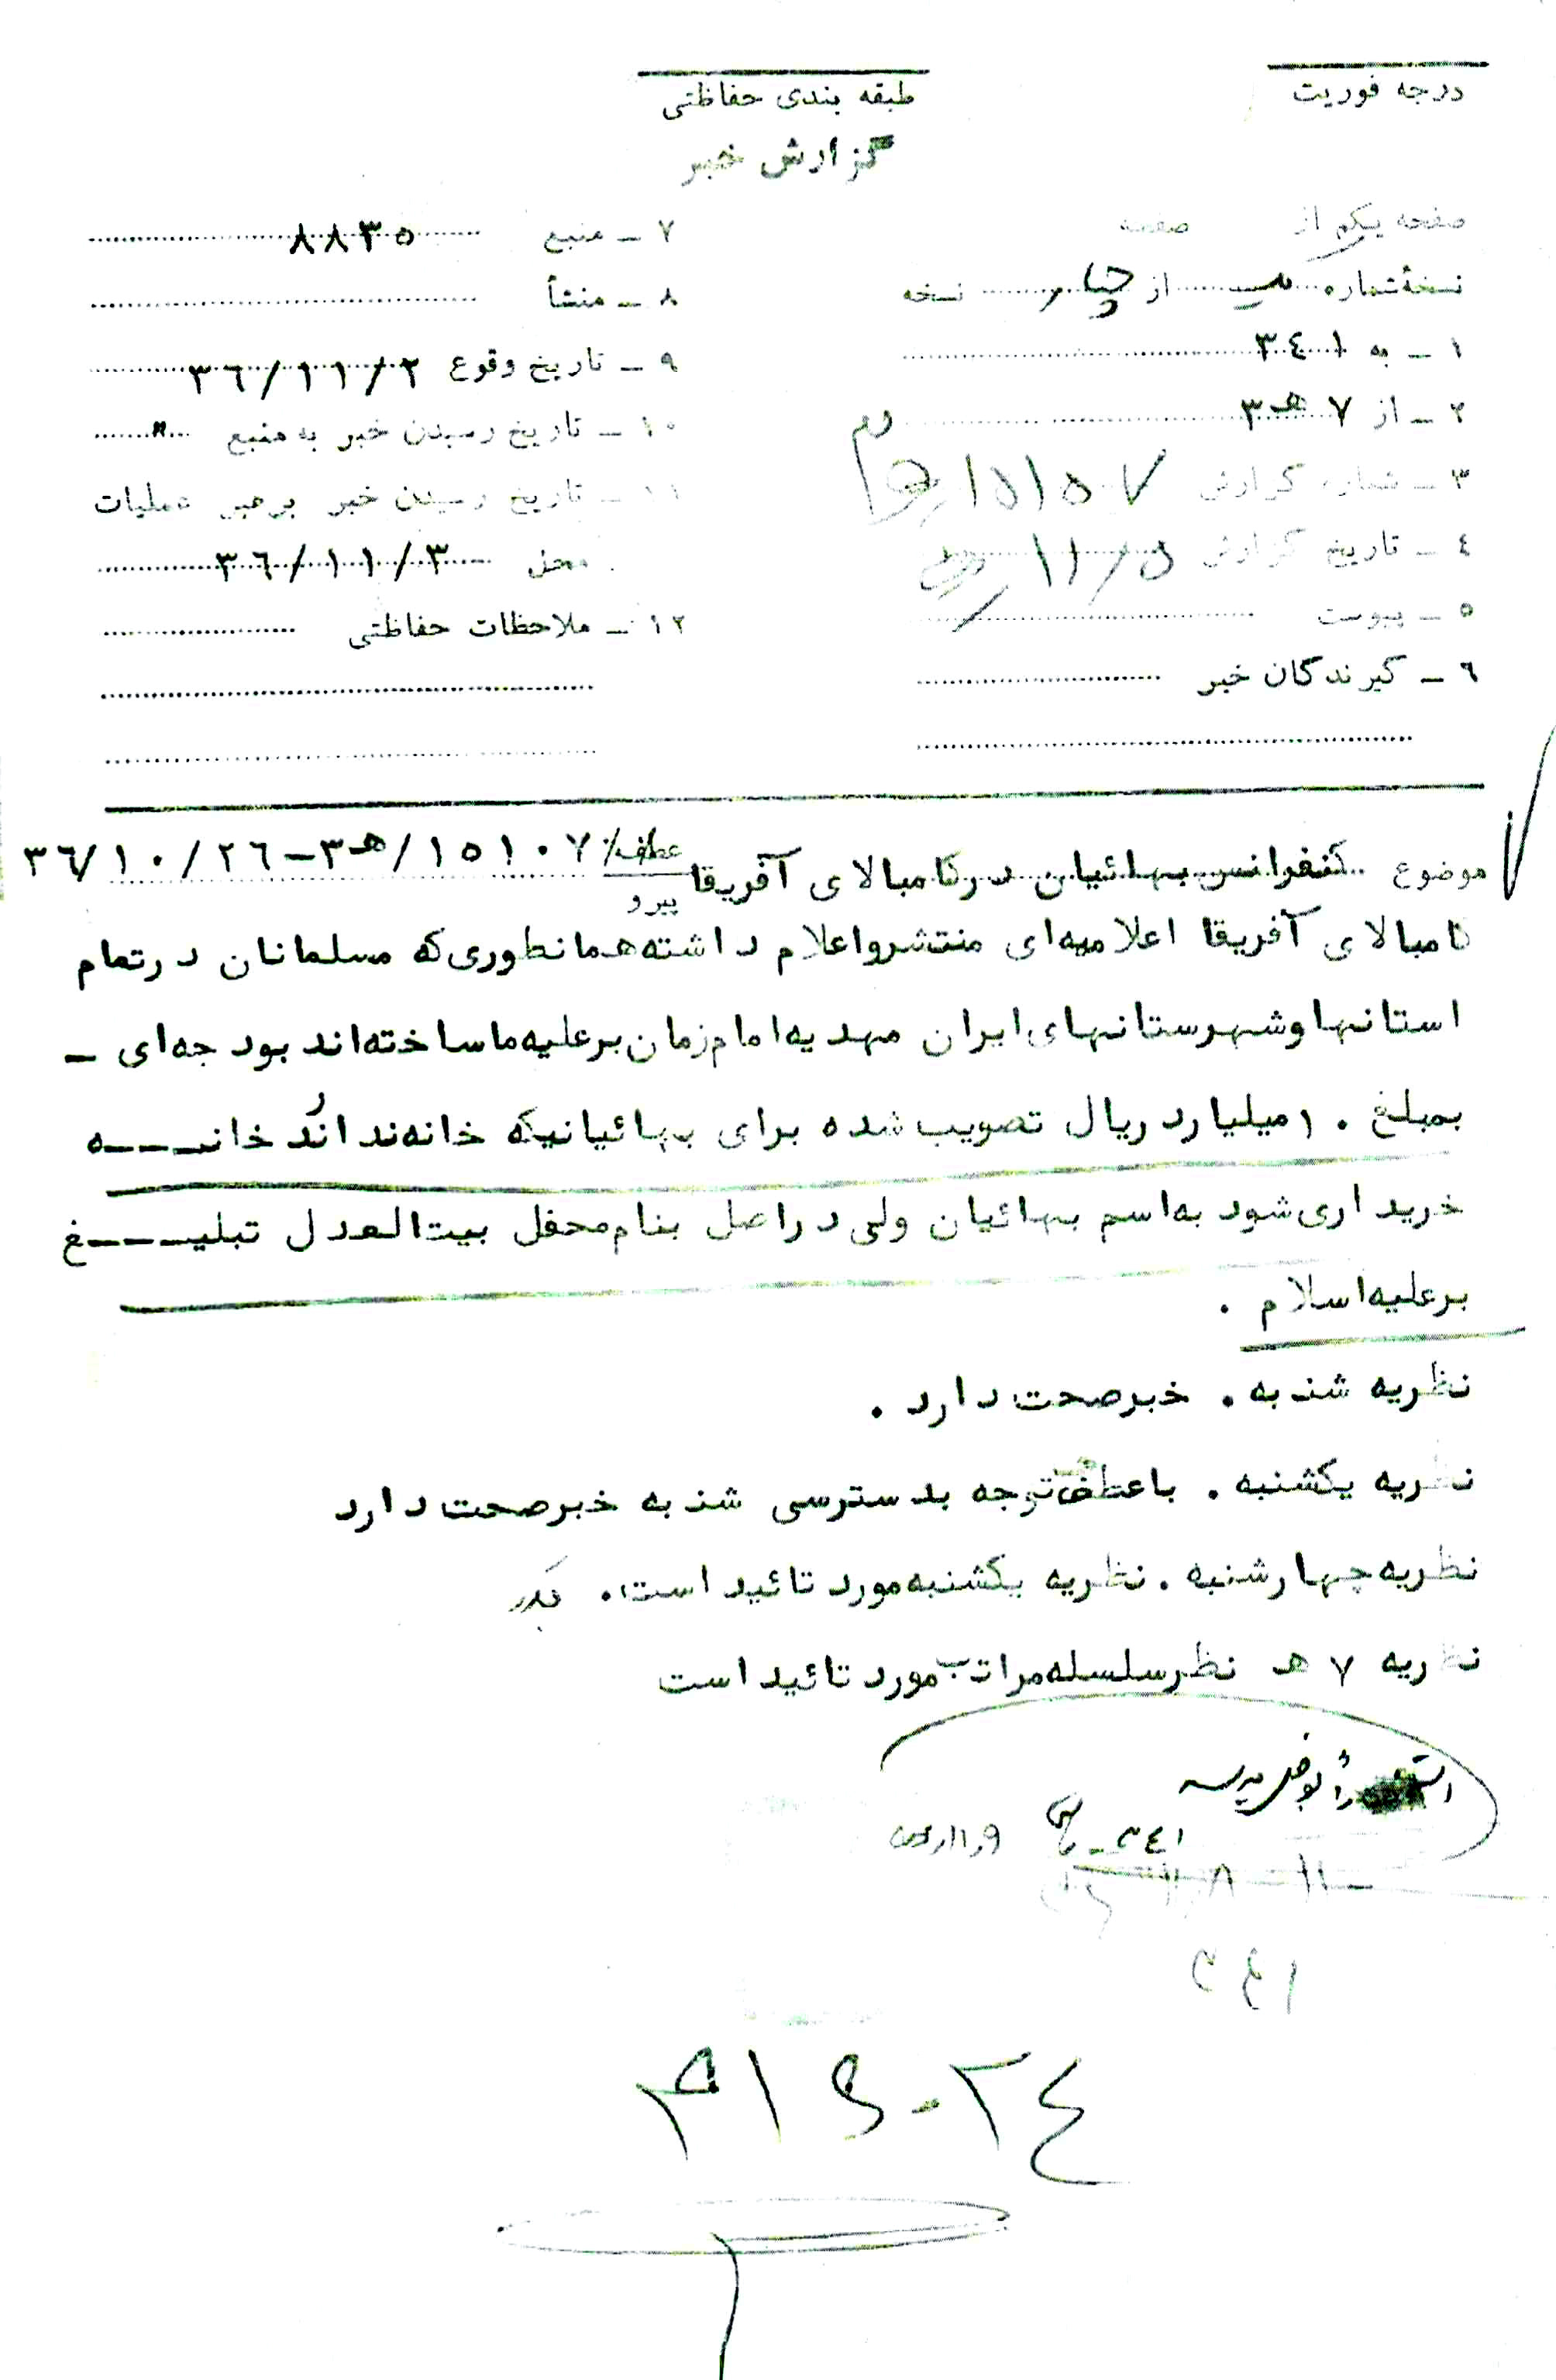 درجه فوریت
طبقه بندی حفاظتی
گزارش خبر
صفحه یکم از صفحه
نسخهٔ شماره از چهار نسخه
۱ ـ به ۳٤۱
۲ ـ از ۷ هـ ۳
۳ ـ شماره گزارش ۱۵۱۵۷
٤ ـ تاریخ گزارش ۱۱/۵
۵ ـ پیوست
٦ ـ گیرندگان خبر
۷ ـ منبع ۸۸۳۵
۸ ـ منشأ
۹ ـ تاریخ وقوع ۳٦/۱۱/۲
۱۰ ـ تاریخ رسیدن خبر به منبع "
۱۱ ـ تاریخ رسیدن خبر برهبر عملیات
محل ۳٦/۱۱/۳
۱۲ ـ ملاحظات حفاظتی
موضوع کنفرانس بهائیان در کامبالای آفریقا عطف/ پیرو ۱۵۱۰۷/هـ۳ـ۳٦/۱۰/۲٦
کامبالای آفریقا اعلامیه‌ای منتشر و اعلام داشته همانطوری که مسلمانان در تمام
استانها و شهرستانهای ایران مهدیه امام زمان بر علیه ما ساخته‌اند بودجه‌ای ـ
بمبلغ ۱۰ میلیارد ریال تصویب شده برای بهائیانیکه خانه ندارند خانـــه
خریداری شود به اسم بهائیان ولی در اصل بنام محفل بیت العدل تبلیـــغ
بر علیه اسلام .
نظریه شنبه . خبر صحت دارد .
نظریه یکشنبه . با عطف توجه بدسترسی شنبه خبر صحت دارد
نظریه چهارشنبه . نظریه یکشنبه مورد تائید است .
نظریه ۷ هـ نظر سلسله مراتب مورد تائید است
۳٤۱